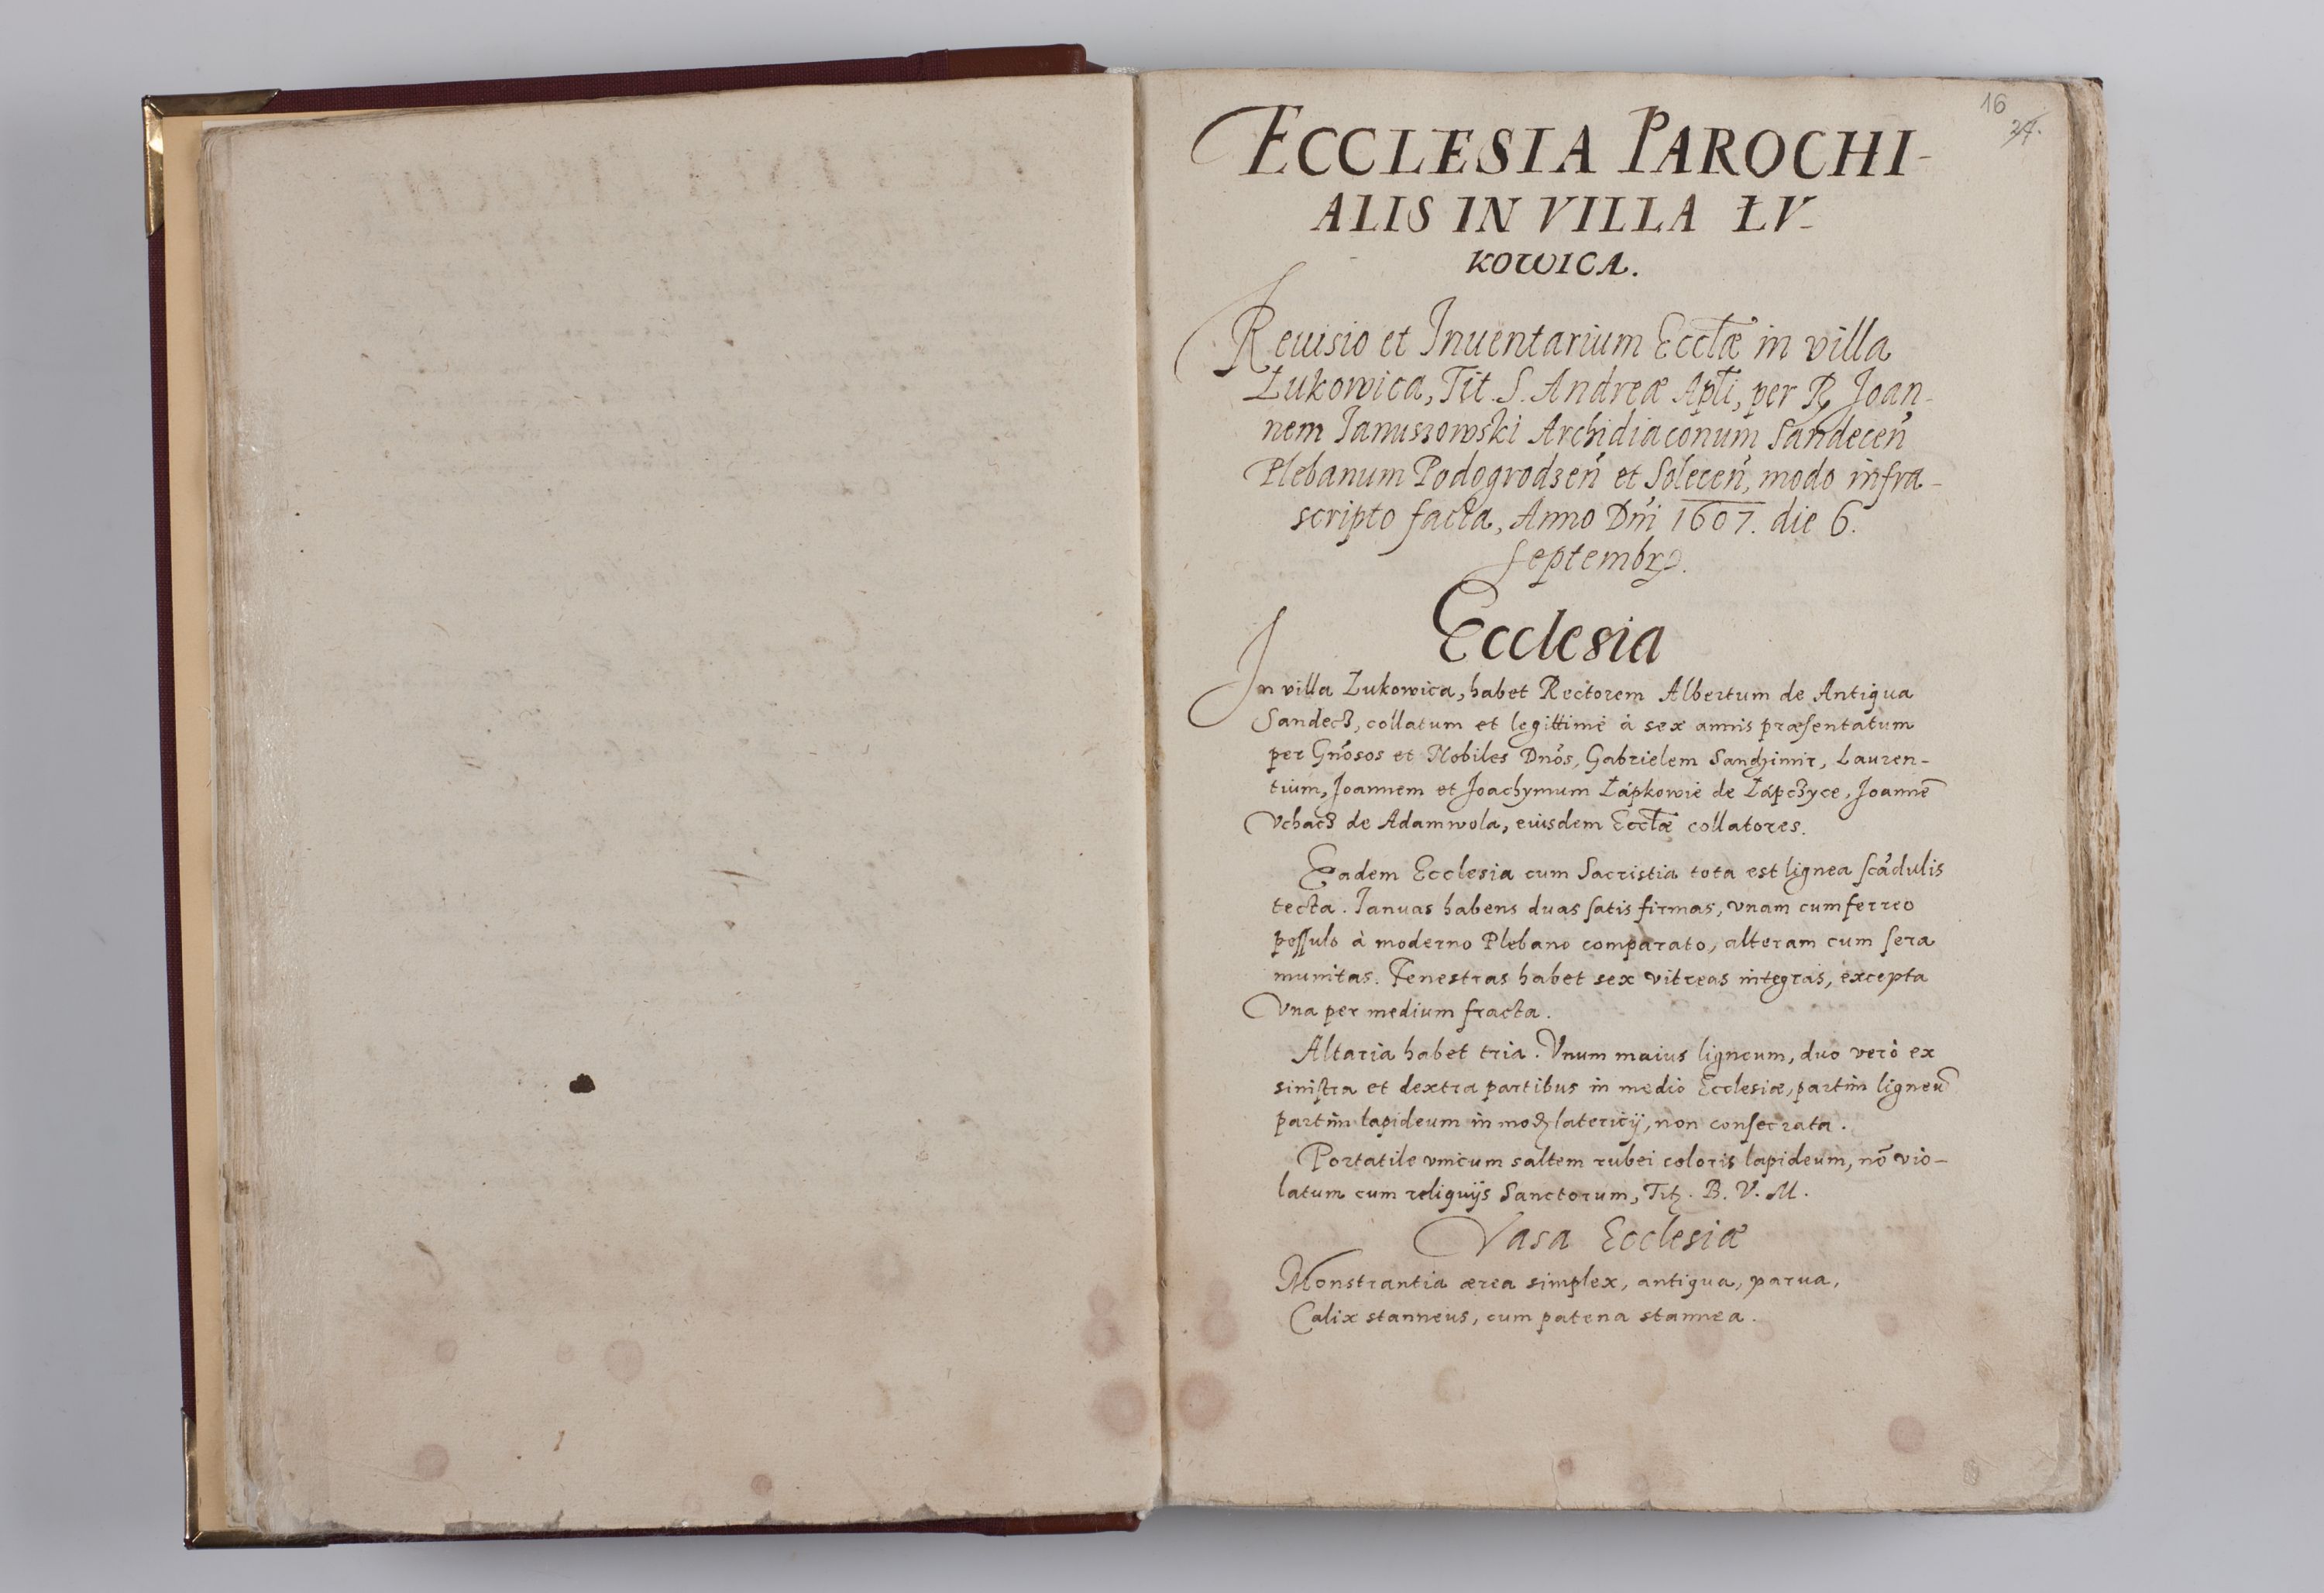 16
27.
ECCLESIA PAROCHI-
ALIS IN VILLA ŁV-
KOWICA.
Reuisio et Inuentarium Eccłæ in villa
Łukowica, Tit. S. Andreæ Apłi, per R. Joan-
nem Januszowski Archidiaconum Sandecen̄
Plebanum Podogrodzen̄ et Solecen̄, modo infra-
scripto facta, Anno Dn̄i 1607. die 6.
Septembr.
Ecclesia
In villa Łukowica, habet Rectorem Albertum de Antiqua
Sandecz, collatum et legittimè à sex annis præsentatum
per Gn̄osos et Nobiles Dn̄os, Gabrielem Sandzimir, Lauren-
tium, Joannem et Joachymum Łápkowie de Łápczyce, Joannē
Vchacz de Adamwola, eiusdem Eccłæ collatores.
Eadem Ecclesia cum Sacristia tota est lignea scādulis
tecta. Januas habens duas satis firmas, vnam cum ferreo
pessulo à moderno Plebano comparato, alteram cum sera
munitas. Fenestras habet sex vitreas integras, excepta
Vna per medium fracta.
Altaria habet tria. Vnum maius ligneum, duo verò ex
sinistra et dextra partibus in medio Ecclesiæ, partim ligneū
partim lapideum in modȝ latericij, non consecrata.
Portatile vnicum saltem rubei coloris lapideum, nō vio-
latum cum reliquijs Sanctorum, Titȝ. B. V. M.
Vasa Ecclesiæ
Monstrantia ærea simplex, antiqua, parua,
Calix stanneus, cum patena stannea.